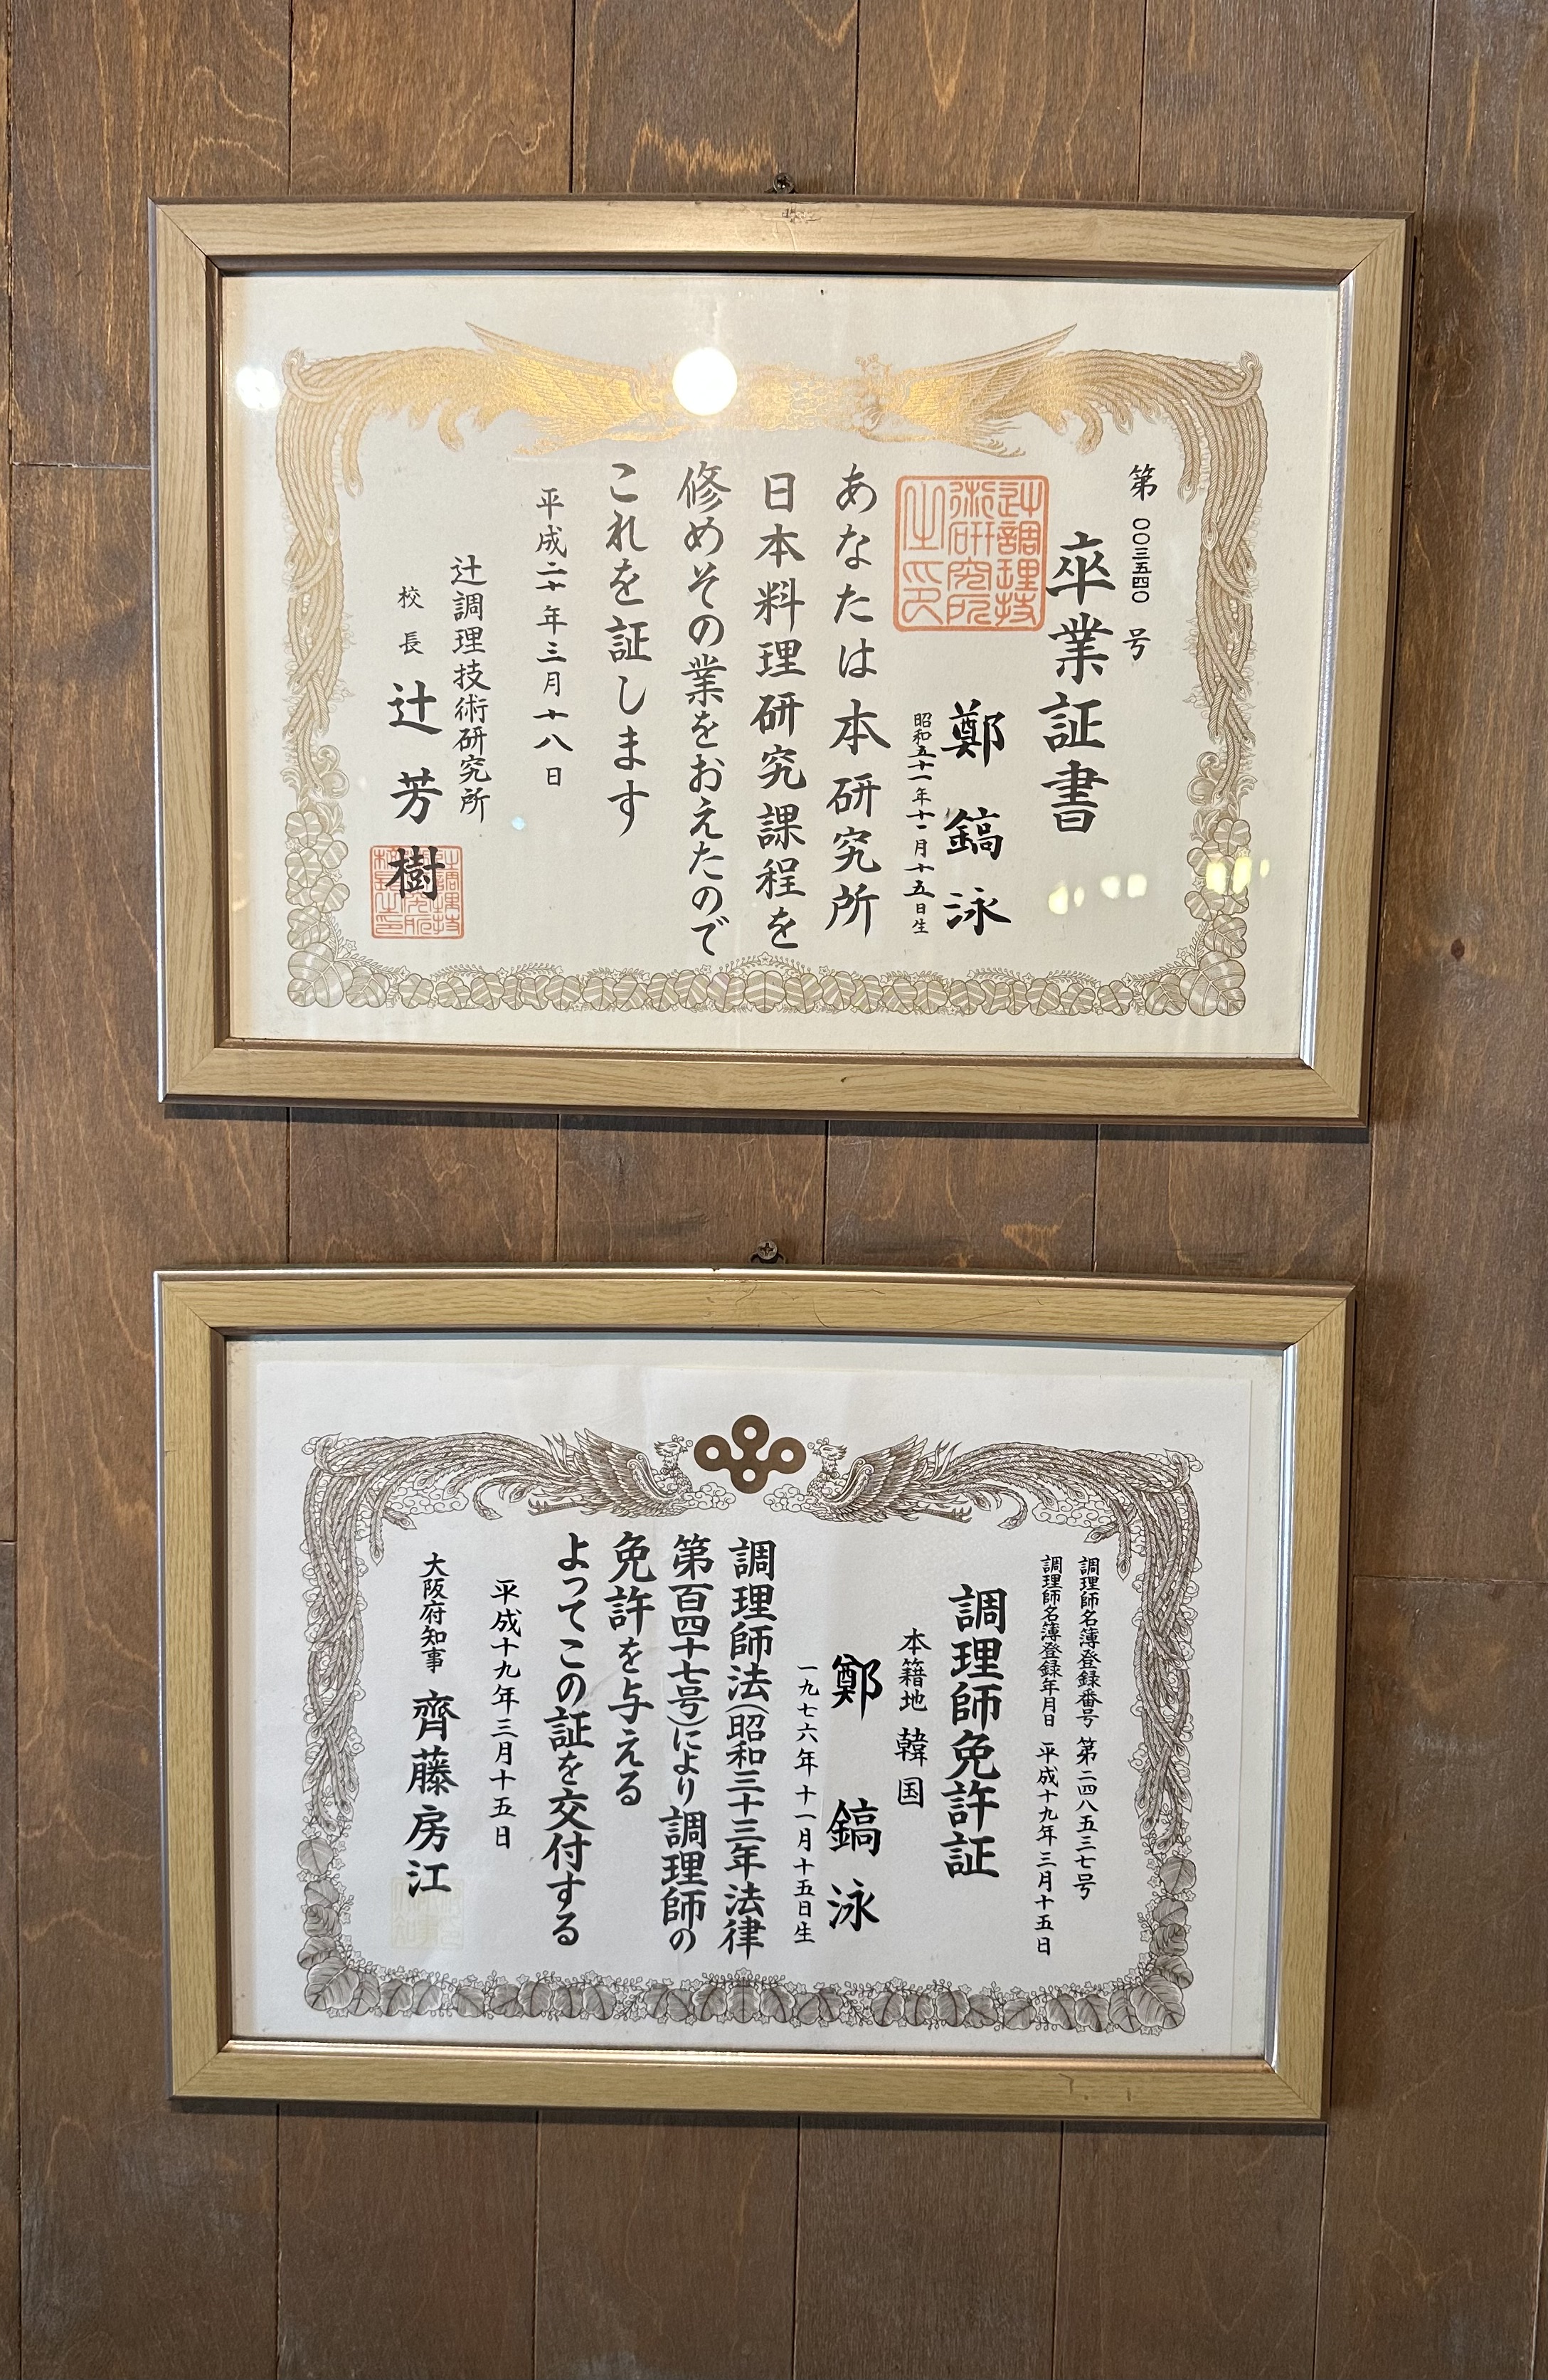 第〇〇三五四〇号
卒業証書
鄭鎬泳
昭和五十一年十一月十五日生
あなたは本研究所
日本料理研究課程を
修めその業をおえたので
これを証します
平成二十年三月十八日
辻調理技術研究所
校長 辻芳樹
辻調理技
術研究所
之印
調理師名簿登録番号 第二四八五三七号
調理師名簿登録年月日 平成十九年三月十五日
調理師免許証
本籍地 韓国
鄭鎬泳
一九七六年十一月十五日生
調理師法(昭和三十三年法律
第百四十七号)により調理師の
免許を与える
よってこの証を交付する
平成十九年三月十五日
大阪府知事 齊藤房江